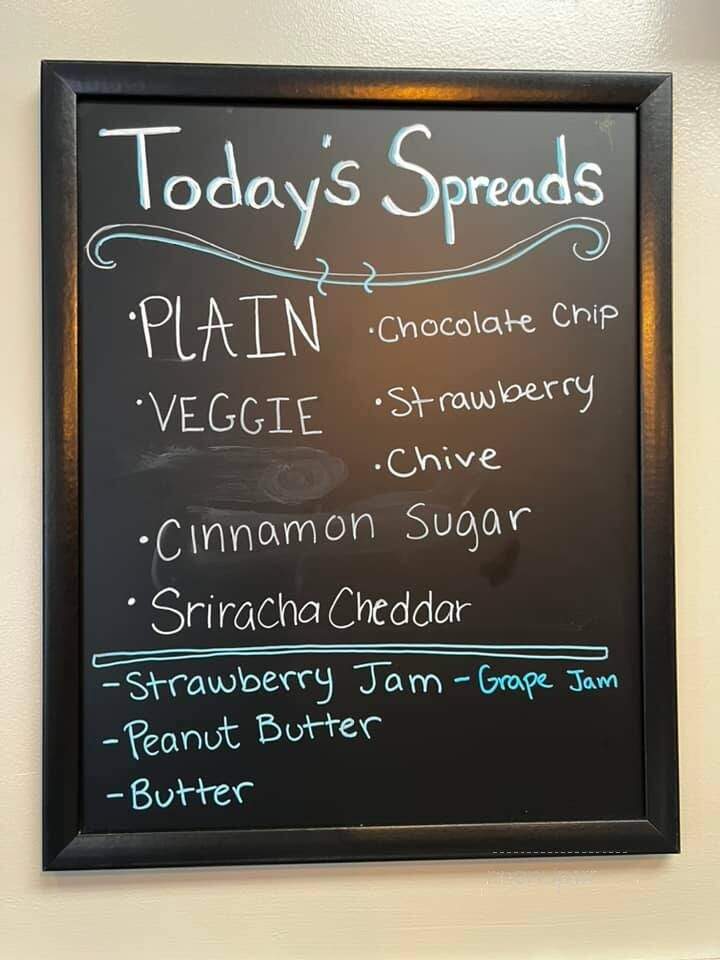 Today's Spreads
·PLAIN ·Chocolate Chip
·VEGGIE ·Strawberry
·Chive
·Cinnamon Sugar
·Sriracha Cheddar
-Strawberry Jam -Grape Jam
-Peanut Butter
-Butter